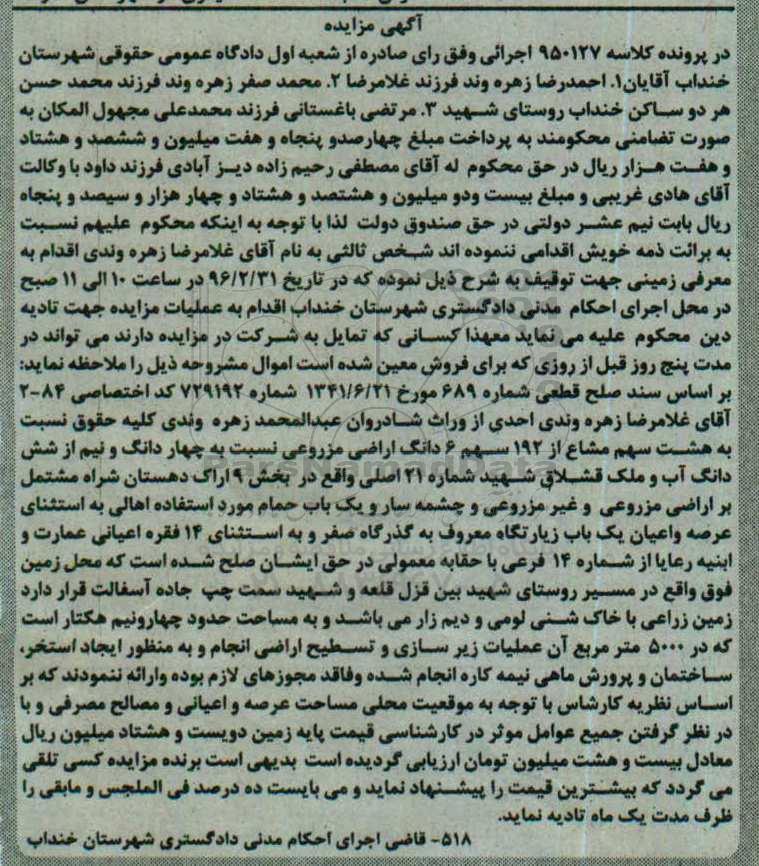 آگهی مزایده
در پرونده کلاسه ۹۵۰۱۲۷ اجرائی وفق رای صادره از شعبه اول دادگاه عمومی حقوقی شهرستان
خنداب آقایان۱. احمدرضا زهره وند فرزند غلامرضا ۲. محمد صفر زهره وند فرزند محمد حسن
هر دو ساکن خنداب روستای شهید ۳. مرتضی باغستانی فرزند محمدعلی مجهول المکان به
صورت تضامنی محکومند به پرداخت مبلغ چهارصدو پنجاه و هفت میلیون و ششصد و هشتاد
و هفت هزار ریال در حق محکوم له آقای مصطفی رحیم زاده دیز آبادی فرزند داود با وکالت
آقای هادی غریبی و مبلغ بیست ودو میلیون و هشتصد و هشتاد و چهار هزار و سیصد و پنجاه
ریال بابت نیم عشر دولتی در حق صندوق دولت لذا با توجه به اینکه محکوم علیهم نسبت
به برائت ذمه خویش اقدامی ننموده اند شخص ثالثی به نام آقای غلامرضا زهره وندی اقدام به
معرفی زمینی جهت توقیف به شرح ذیل نموده که در تاریخ ۹۶/۲/۳۱ در ساعت ۱۰ الی ۱۱ صبح
در محل اجرای احکام مدنی دادگستری شهرستان خنداب اقدام به عملیات مزایده جهت تادیه
دین محکوم علیه می نماید معهذا کسانی که تمایل به شرکت در مزایده دارند می تواند در
مدت پنج روز قبل از روزی که برای فروش معین شده است اموال مشروحه ذیل را ملاحظه نماید:
بر اساس سند صلح قطعی شماره ۶۸۹ مورخ ۱۳۴۱/۶/۲۱ شماره ۷۲۹۱۹۲ کد اختصاصی ۸۴-۲
آقای غلامرضا زهره وندی احدی از وراث شادروان عبدالمحمد زهره وندی کلیه حقوق نسبت
به هشت سهم مشاع از ۱۹۲ سهم ۶ دانگ اراضی مزروعی نسبت به چهار دانگ و نیم از شش
دانگ آب و ملک قشلاق شهید شماره ۲۱ اصلی واقع در بخش ۹ اراک دهستان شراه مشتمل
بر اراضی مزروعی و غیر مزروعی و چشمه سار و یک باب حمام مورد استفاده اهالی به استثنای
عرصه واعیان یک باب زیارتگاه معروف به گذرگاه صفر و به استثنای ۱۴ فقره اعیانی عمارت و
ابنیه رعایا از شماره ۱۴ فرعی با حقابه معمولی در حق ایشان صلح شده است که محل زمین
فوق واقع در مسیر روستای شهید بین قزل قلعه و شهید سمت چپ جاده آسفالت قرار دارد
زمین زراعی با خاک شنی لومی و دیم زار می باشد و به مساحت حدود چهارونیم هکتار است
که در ۵۰۰۰ متر مربع آن عملیات زیر سازی و تسطیح اراضی انجام و به منظور ایجاد استخر،
ساختمان و پرورش ماهی نیمه کاره انجام شده وفاقد مجوزهای لازم بوده وارائه ننمودند که بر
اساس نظریه کارشاس با توجه به موقعیت محلی مساحت عرصه و اعیانی و مصالح مصرفی و با
در نظر گرفتن جمیع عوامل موثر در کارشناسی قیمت پایه زمین دویست و هشتاد میلیون ریال
معادل بیست و هشت میلیون تومان ارزیابی گردیده است بدیهی است برنده مزایده کسی تلقی
می گردد که بیشترین قیمت را پیشنهاد نماید و می بایست ده درصد فی الملجس و مابقی را
ظرف مدت یک ماه تادیه نماید.
۵۱۸- قاضی اجرای احکام مدنی دادگستری شهرستان خنداب